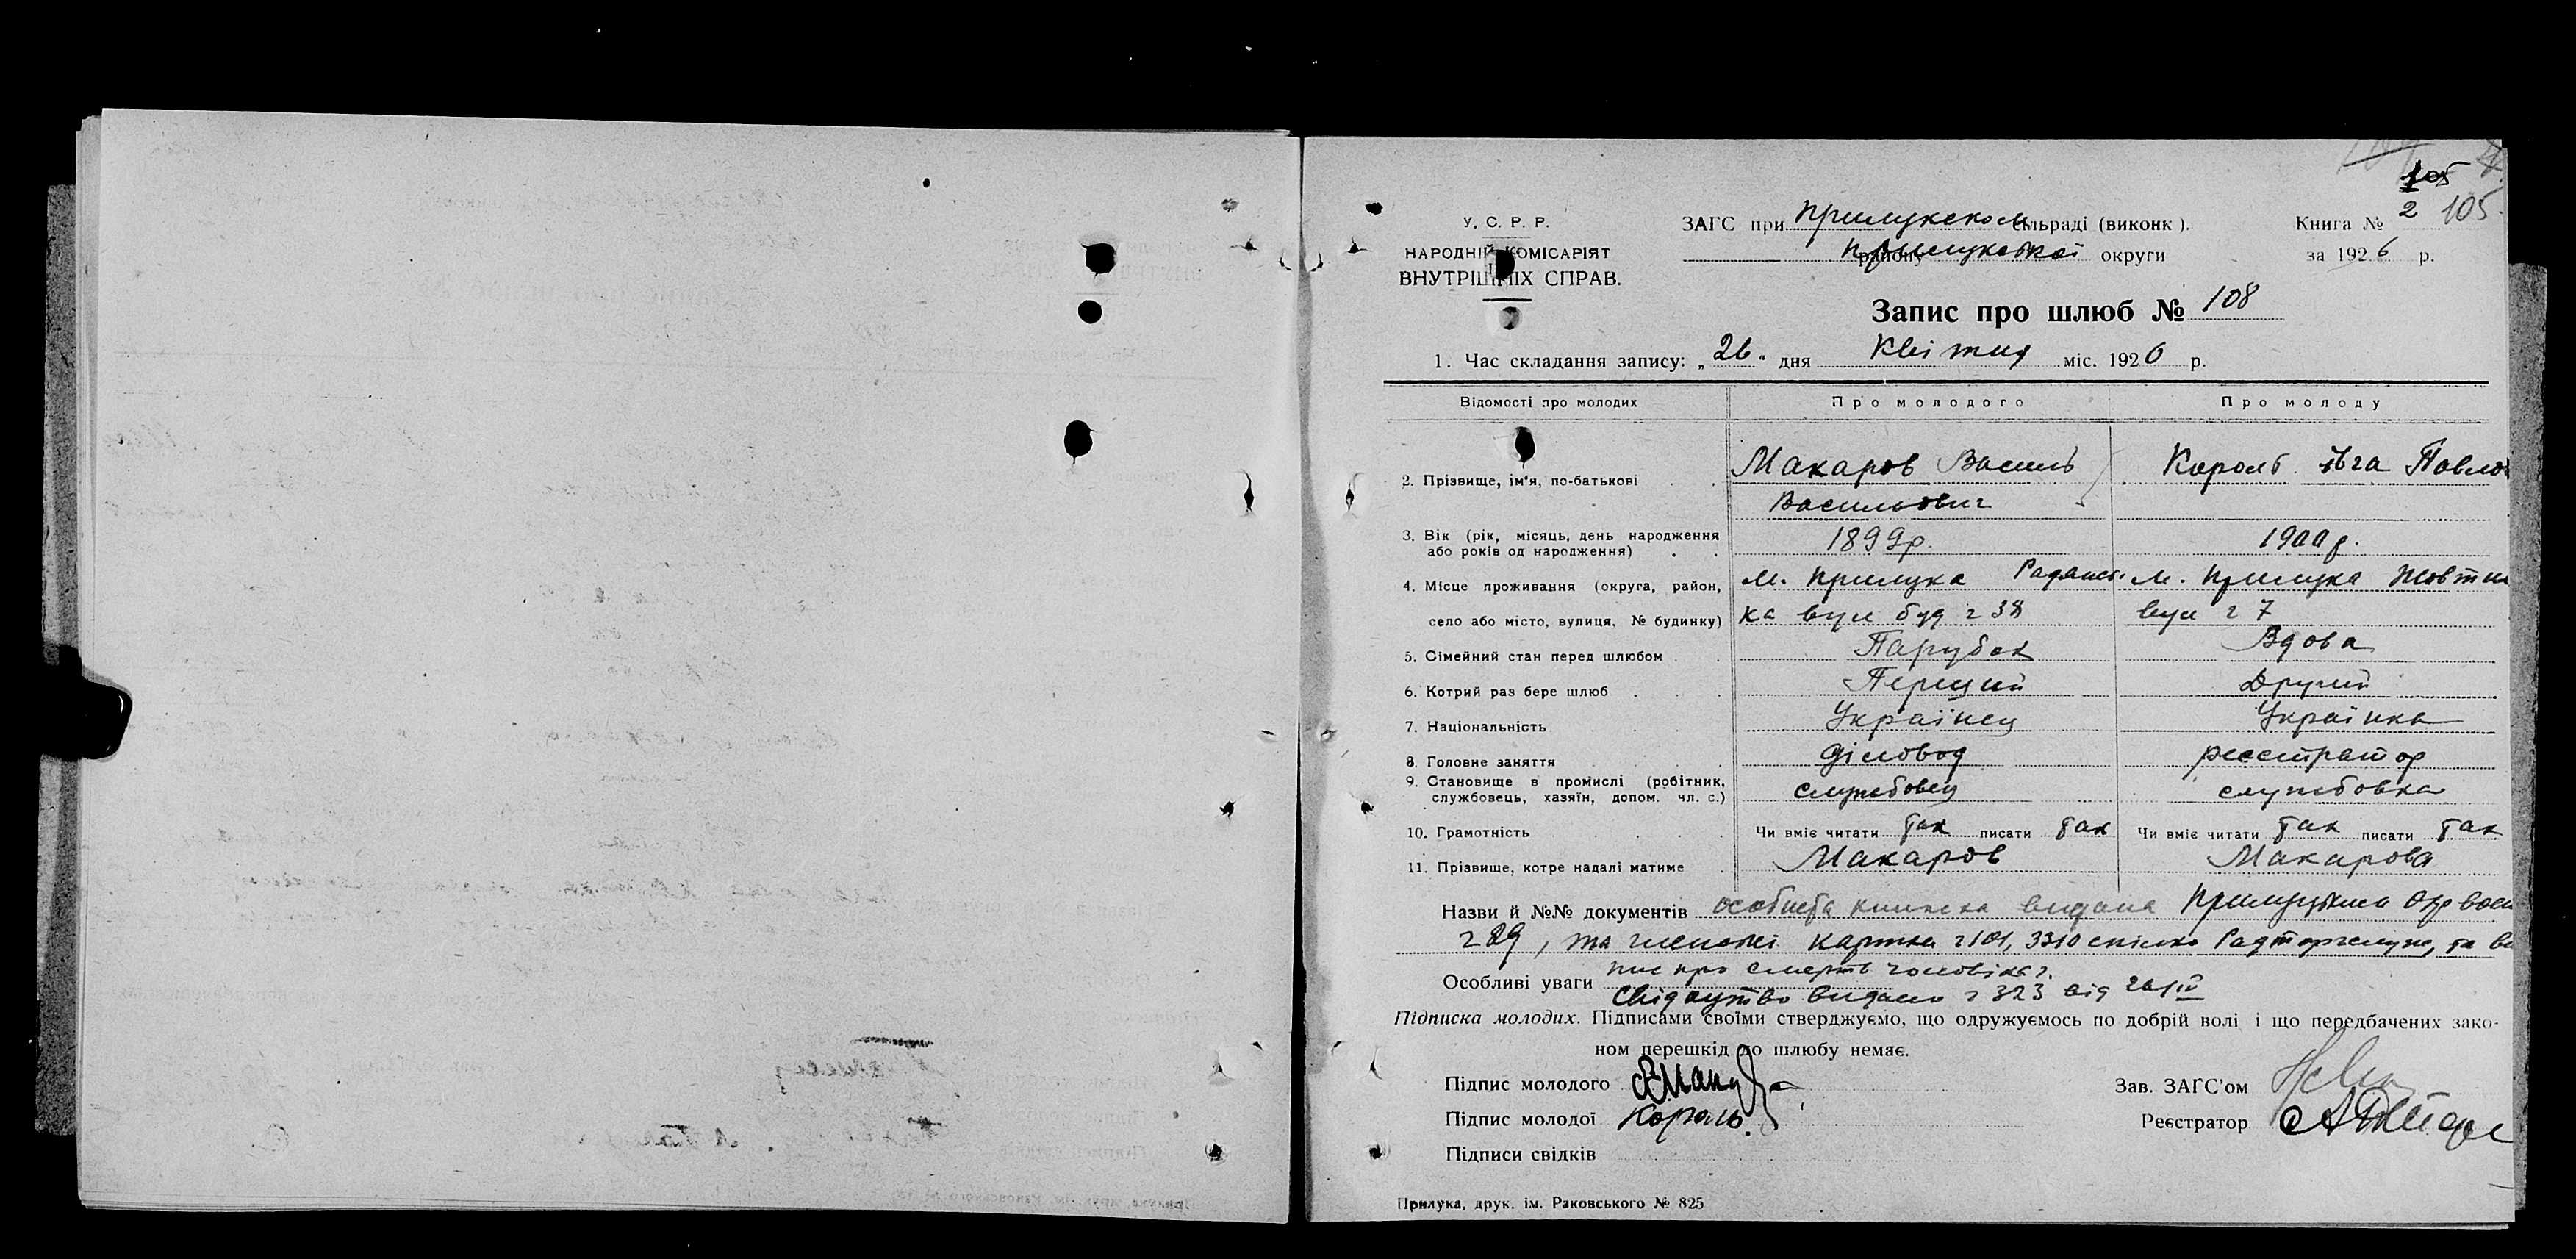 105
У. С. Р. Р.
НАРОДНІЙ КОМІСАРІЯТ
ВНУТРІШНІХ СПРАВ.
ЗАГС при Прилукском сільраді (виконк).
району Прилукської округи
Книга № 2 105
за 1926 р.
Запис про шлюб № 108
1. Час складання запису: „26" дня Квітня міс. 1926 р.
Відомості про молодих Про молодого Про молоду
2. Прізвище, ім'я, по-батькові Макаров Василь Король Івга Павлов
Васильович
3. Вік (рік, місяць, день народження або років од народження) 1899р. 1900р.
4. Місце проживання (округа, район, м. Прилука Радянсь- м. Прилука Жовтн
село або місто, вулиця, № будинку) ка вул буд ч 38 вул ч 7
5. Сімейний стан перед шлюбом Парубок Вдова
6. Котрий раз бере шлюб Перший Другий
7. Національність Українец Українка
8. Головне заняття діловод реєстратор
9. Становище в промислі (робітник, службовець, хазяїн, допом. чл. с.) службовец службовка
10. Грамотність Чи вміє читати так писати так Чи вміє читати так писати так
11. Прізвище, котре надалі матиме Макаров Макарова
Назви й №№ документів особиста книжка видана Прилуцьким
ч 89, та членські картки ч 101, 3310 спілки Радторгслуж, та
Особливі уваги про смерть чоловіка
Свідоцтво видано ч 323 від
Підписка молодих. Підписами своїми стверджуємо, що одружуємось по добрій волі і що передбачених зако-
ном перешкід до шлюбу немає.
Підпис молодого
Зав. ЗАГС'ом
Підпис молодої Король.
Реєстратор
Підписи свідків
Прилука, друк. ім. Раковського № 825